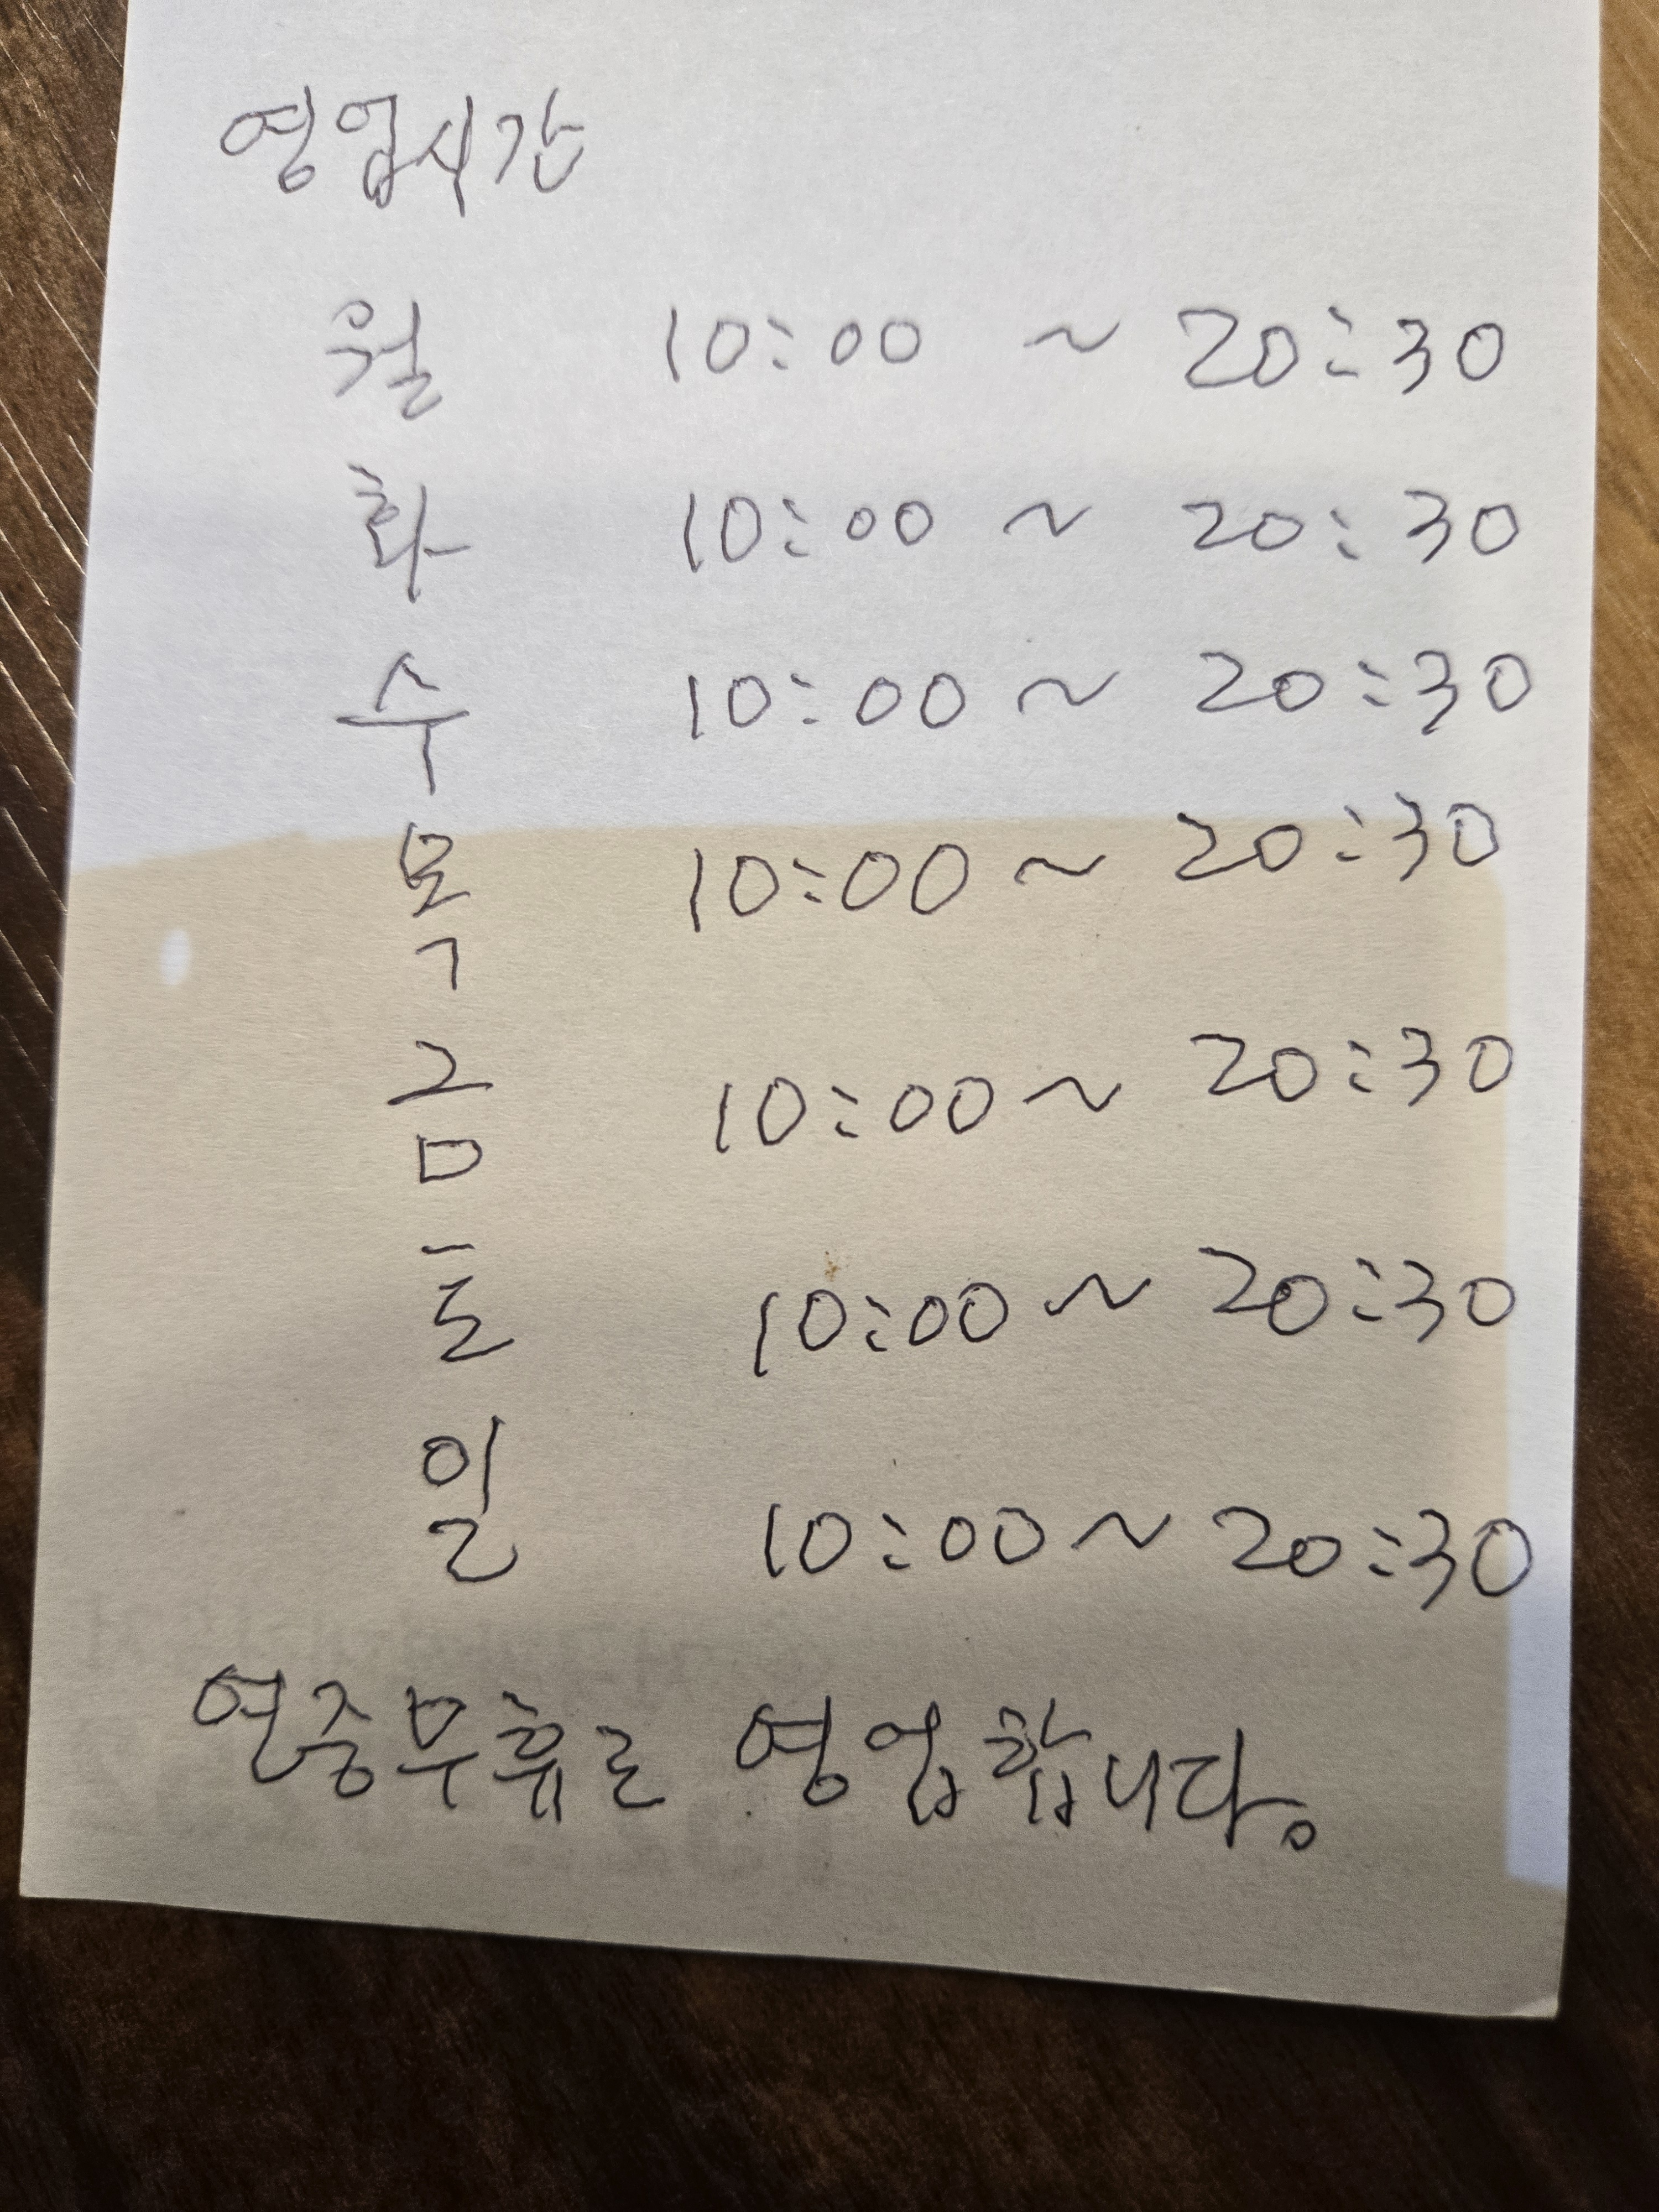 영업시간
월 10:00 ~ 20:30
화 10:00 ~ 20:30
수 10:00 ~ 20:30
목 10:00 ~ 20:30
금 10:00 ~ 20:30
토 10:00 ~ 20:30
일 10:00 ~ 20:30
연중무휴로 영업합니다.